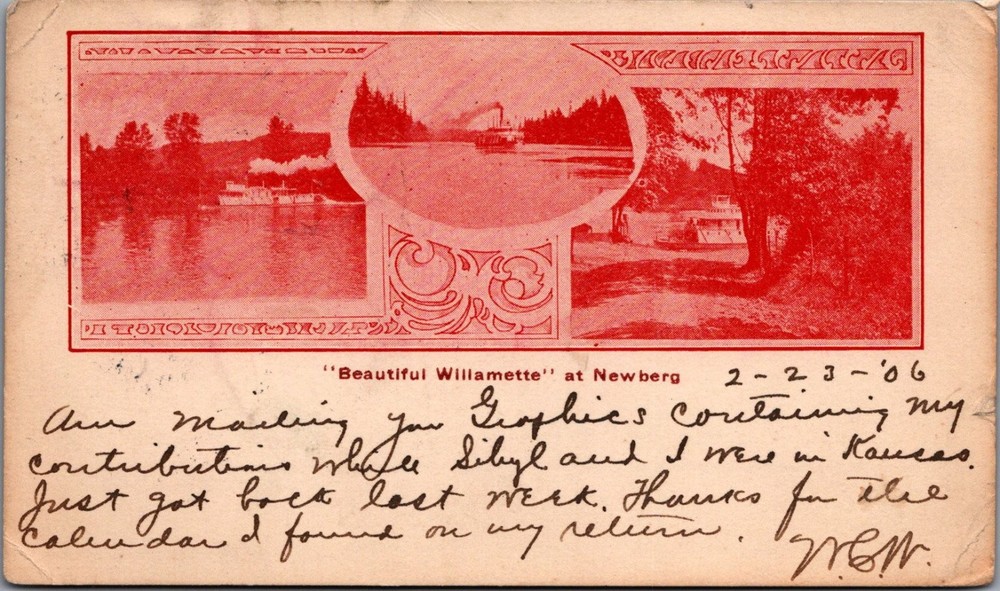 "Beautiful Willamette" at Newberg
2-23-'06
Am mailing you Graphics containing my
contributions while Sibyl and I were in Kansas.
Just got back last week. Thanks for the
calendar I found on my return.
W.C.W.